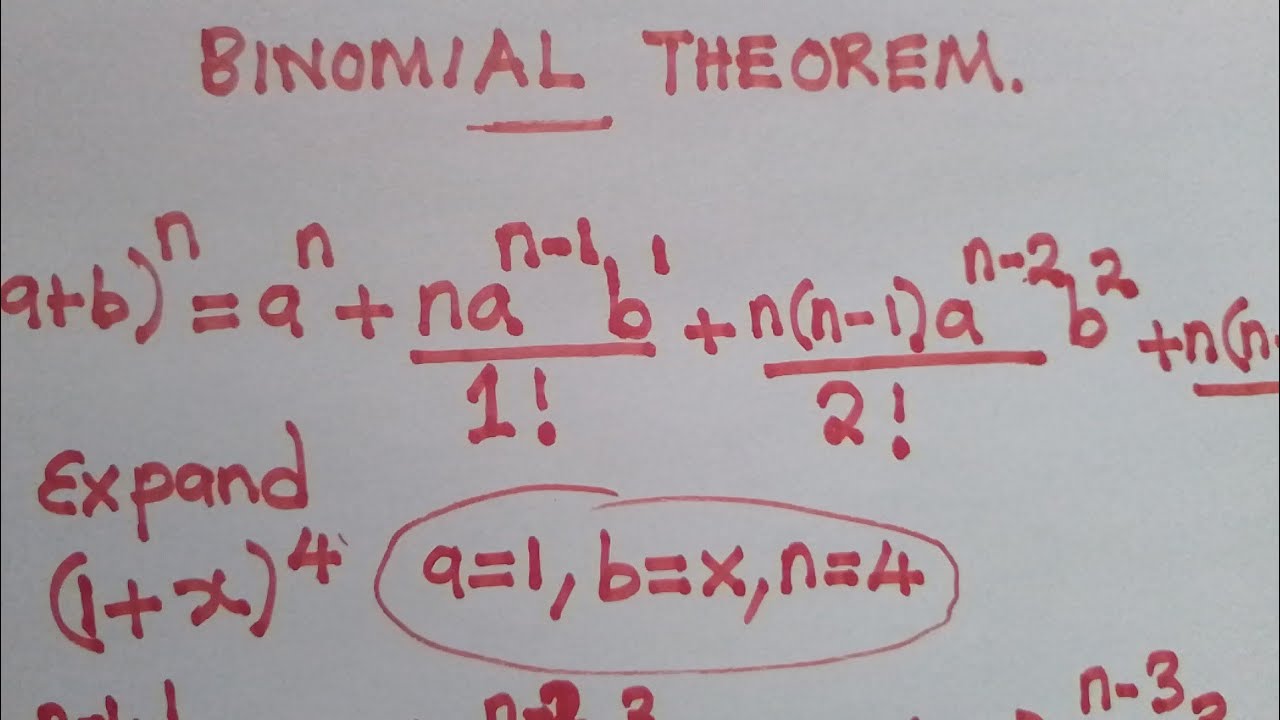 BINOMIAL THEOREM.
a+b)^n = a^n + na^(n-1) b^1 / 1! + n(n-1)a^(n-2) b^2 / 2! + n(n-
Expand
(1+x)^4
a=1, b=x, n=4
n-3